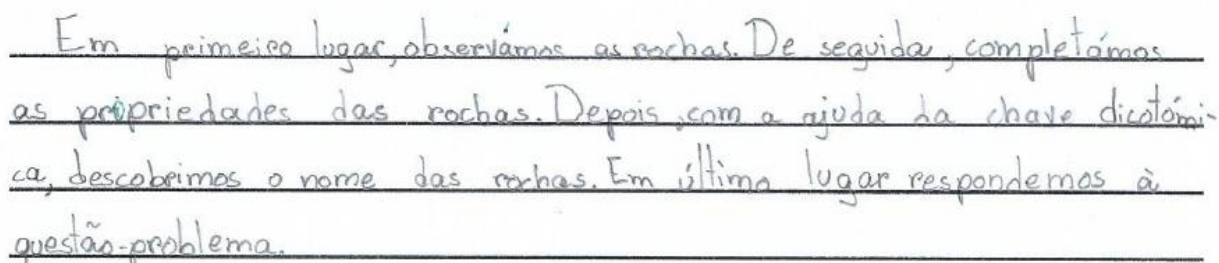 Em primeiro lugar, observámos as rochas. De seguida, completámos
as propriedades das rochas. Depois, com a ajuda da chave dicotómi-
ca, descobrimos o nome das rochas. Em último lugar respondemos à
questão-problema.